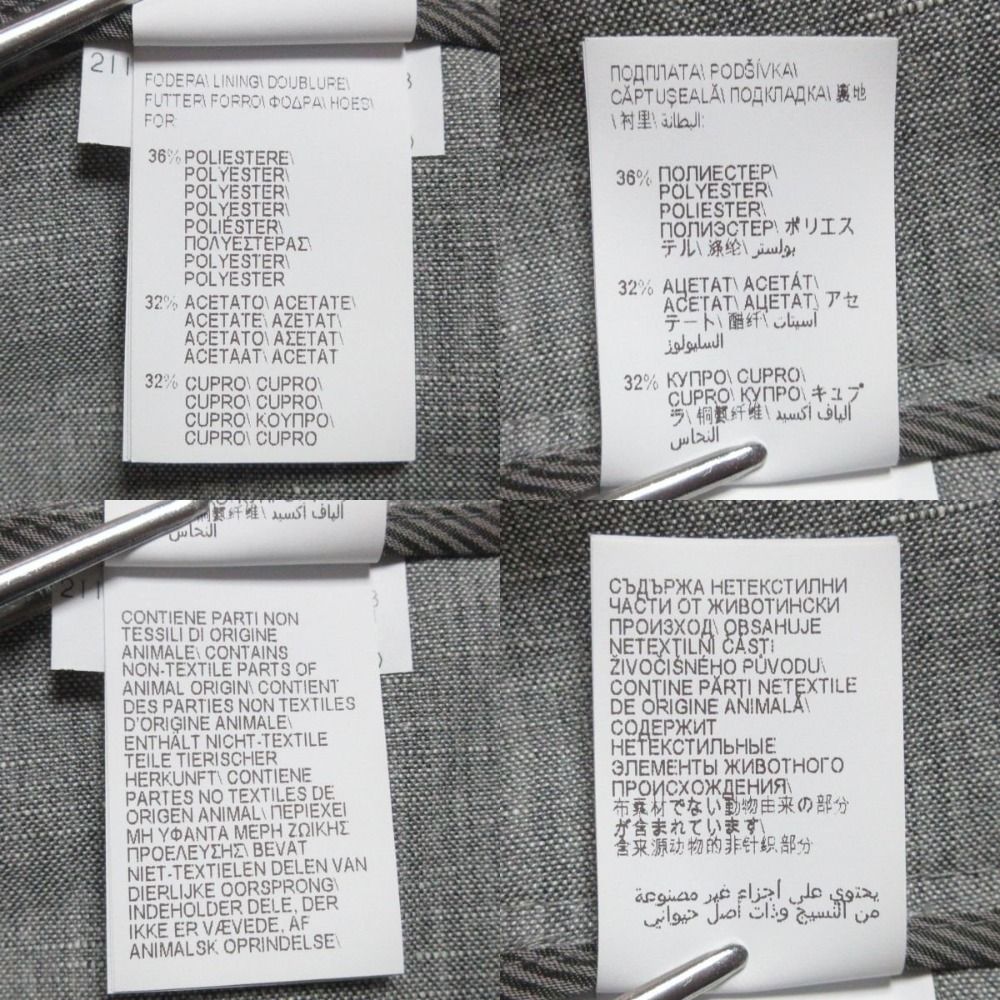 211
FODERA\ LINING\ DOUBLURE\
FUTTER\ FORRO\ ΦΟΔΡΑ\ HOES\
FOR:
36% POLIESTERE\
POLYESTER\
POLYESTER\
POLYESTER\
POLIÉSTER\
ΠΟΛΥΕΣΤΕΡΑΣ\
POLYESTER\
POLYESTER
32% ACETATO\ ACETATE\
ACETATE\ AZETAT\
ACETATO\ ΑΣΕΤΑΤ\
ACETAAT\ ACETAT
32% CUPRO\ CUPRO\
CUPRO\ CUPRO\
CUPRO\ ΚΟΥΠΡΟ\
CUPRO\ CUPRO
ПОДПЛАТА\ PODŠÍVKA\
CĂPTUȘEALĂ\ ПОДКЛАДКА\ 裏地
\ 衬里\ البطانة:
36% ПОЛИЕСТЕР\
POLYESTER\
POLIESTER\
ПОЛИЭСТЕР\ ポリエス
テル\ 涤纶\ بولستر
32% АЦЕТАТ\ ACETÁT\
ACETAT\ АЦЕТАТ\ アセ
テート\ 醋纤\ اسيتات
السليولوز
32% КУПРО\ CUPRO\
CUPRO\ КУПРО\ キュプ
ラ\ 铜氨纤维\ الياف اكسيد
النحاس
الياف اكسيد \铜氨纤维
النحاس
211
CONTIENE PARTI NON
TESSILI DI ORIGINE
ANIMALE\ CONTAINS
NON-TEXTILE PARTS OF
ANIMAL ORIGIN\ CONTIENT
DES PARTIES NON TEXTILES
D'ORIGINE ANIMALE\
ENTHÄLT NICHT-TEXTILE
TEILE TIERISCHER
HERKUNFT\ CONTIENE
PARTES NO TEXTILES DE
ORIGEN ANIMAL\ ΠΕΡΙΕΧΕΙ
ΜΗ ΥΦΑΝΤΑ ΜΕΡΗ ΖΩΙΚΗΣ
ΠΡΟΕΛΕΥΣΗΣ\ BEVAT
NIET-TEXTIELEN DELEN VAN
DIERLIJKE OORSPRONG\
INDEHOLDER DELE, DER
IKKE ER VÆVEDE, AF
ANIMALSK OPRINDELSE\
СЪДЪРЖА НЕТЕКСТИЛНИ
ЧАСТИ ОТ ЖИВОТИНСКИ
ПРОИЗХОД\ OBSAHUJE
NETEXTILNÍ ČÁSTI
ŽIVOČIŠNÉHO PŮVODU\
CONȚINE PĂRȚI NETEXTILE
DE ORIGINE ANIMALĂ\
СОДЕРЖИТ
НЕТЕКСТИЛЬНЫЕ
ЭЛЕМЕНТЫ ЖИВОТНОГО
ПРОИСХОЖДЕНИЯ\
布素材でない動物由来の部分
が含まれています\
含来源动物的非针织部分
يحتوي على أجزاء غير مصنوعة
من النسيج وذات أصل حيواني